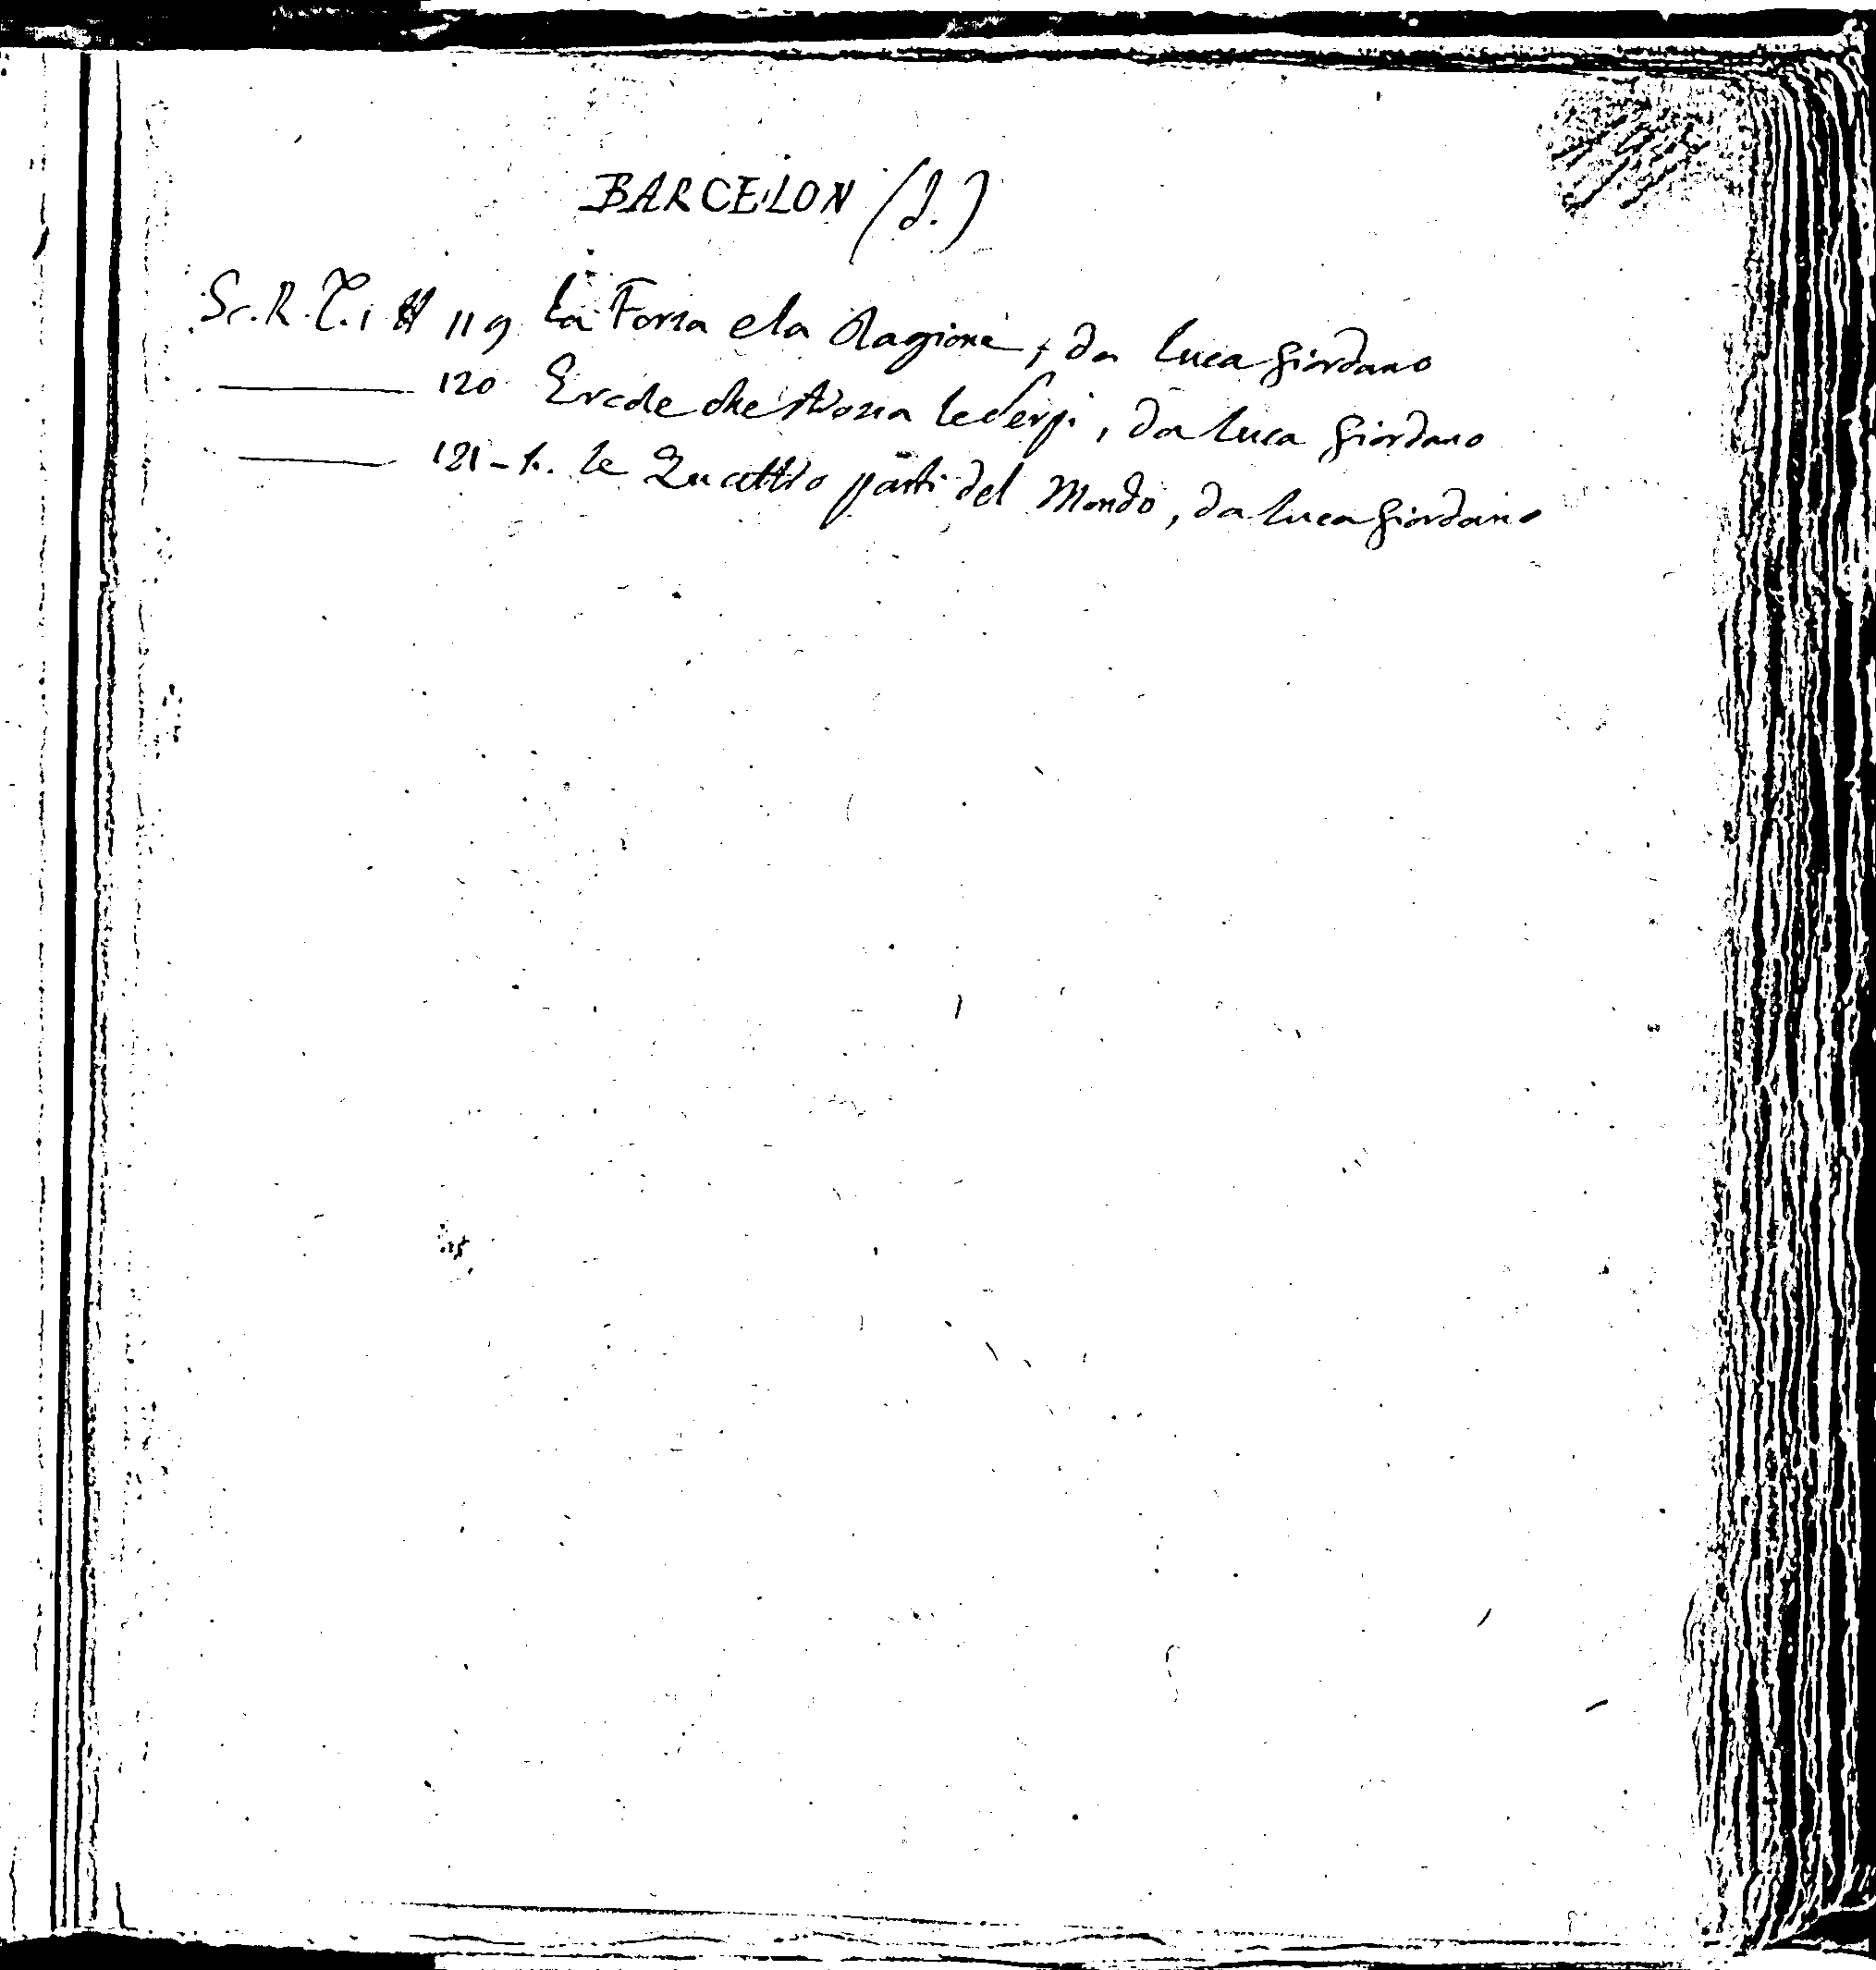 BARCELON (J.)
Sc. R. T. 1 # 119 La Forza e la Ragione, da Luca Giordano
120 Ercole che strozza le Serpi, da Luca Giordano
121-4. le Quattro parti del Mondo, da Luca Giordano